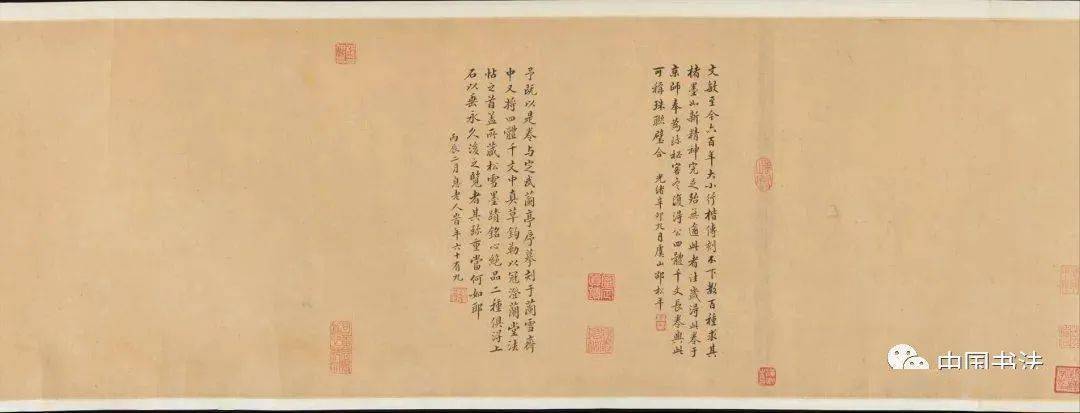 文敏至今六百年大小行楷傳刻不下數百種求其
楮墨如新精神完足殆無逾此者往歲得此卷于
京師奉為珍秘客冬復得公四體千文長卷與此
可稱珠聯璧合 光緒辛卯九月虞山邵松年
予既以是卷与定武蘭亭序摹刻于蘭雪齋
中又將四體千文中真草鉤勒以冠澄蘭堂法
帖之首蓋所藏松雪墨蹟銘心絕品二種俱淂上
石以垂永久後之覽者其珍重當何如耶
丙辰二月息老人昔年六十有九
中国书法